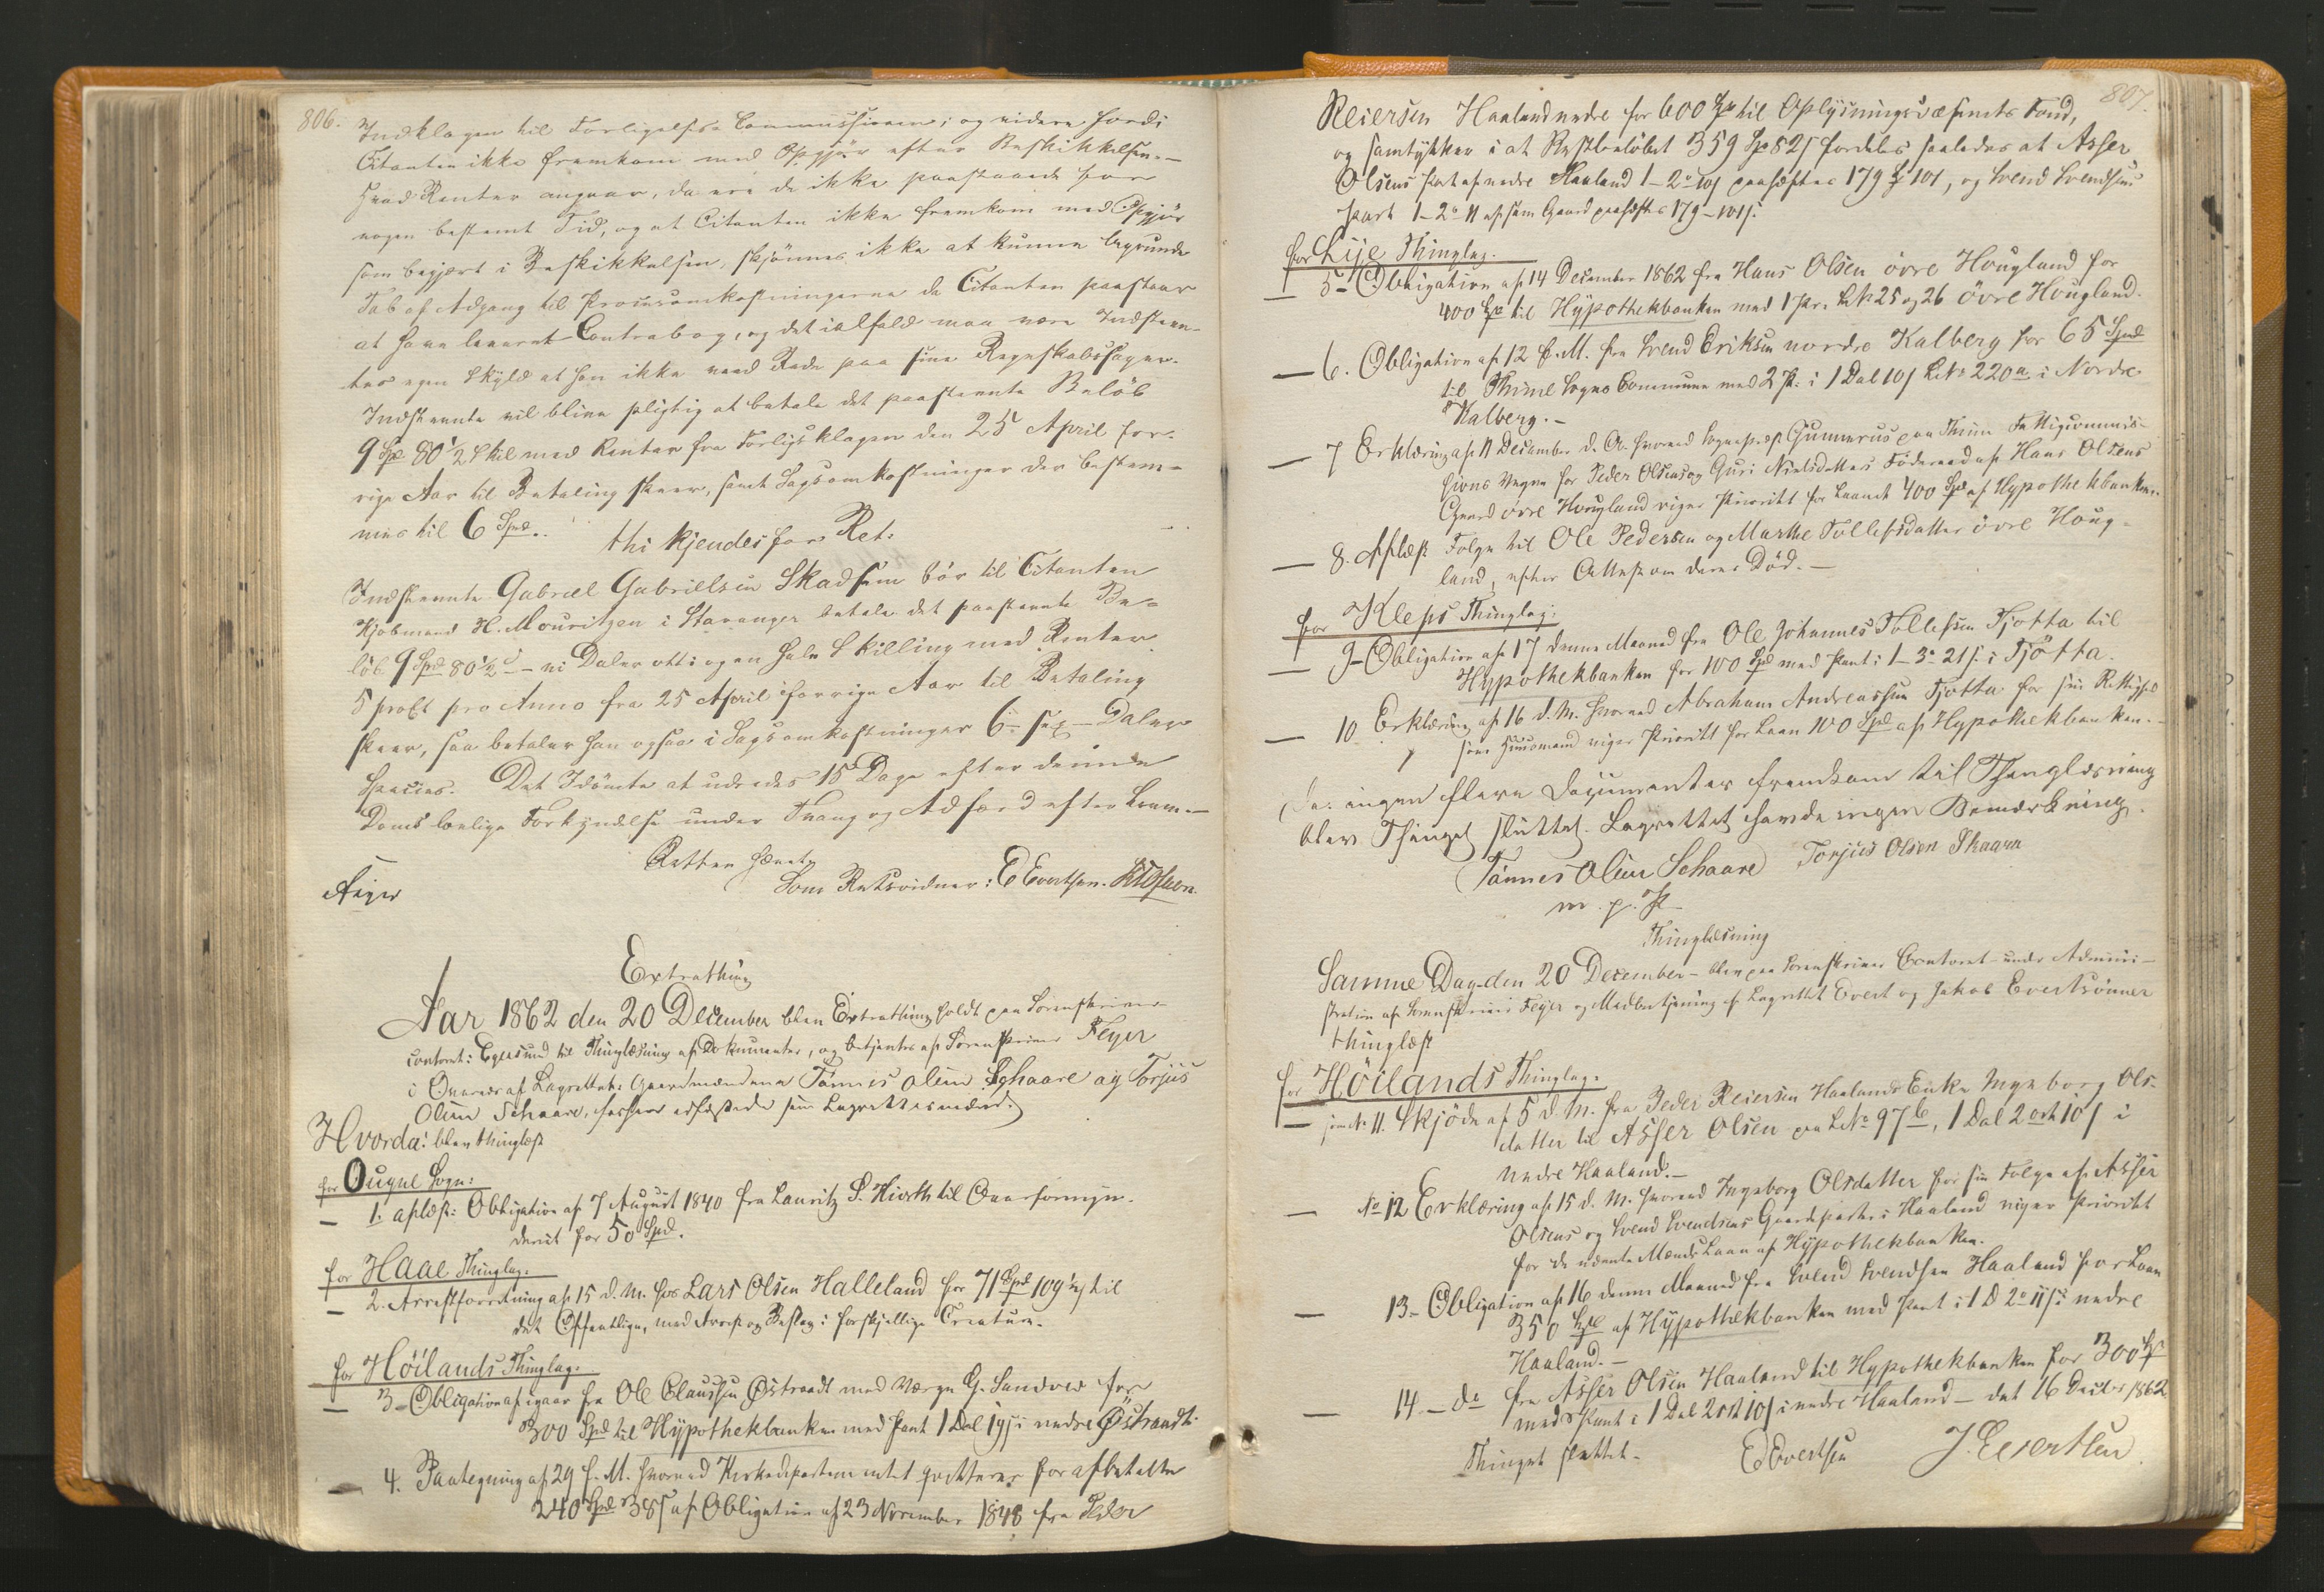 806.
Indklagen til Forligelses Commissionen; og videre fordi
Citanten ikke fremkom med Opgjør efter Beskikkelsen. —
Hvad Renter angaar, da ere de ikke paastaaede for
nogen bestemt Tid, og at Citanten ikke fremkom med Opgjør
som begjært i Beskikkelsen, skjønnes ikke at kunne begrunde
Tab af Adgang til Procesomkostningerne da Citanten paastaar
at have leveret Contrabog, og det ialfald maa være Indstevn-
tes egen Skyld at han ikke veed Rede paa sine Regnskabssager.
Indstevnte vil blive pligtig at betale det paastevnte Beløb
9 Spd 80½ Skil med Renter fra Forligsklagen den 25 April for-
rige Aar til Betaling skeer, samt Sagsomkostninger der bestem-
mes til 6 Spd..
thi kjendes for Ret:
Indstevnte Gabriel Gabrielsen Skadsem bør til Citanten
Kjøbmand H. Mouritzen i Stavanger betale det paastevnte Be-
løb 9 Spd 80½ s — ni Daler otti og en halv Skilling med Renter
5 proCt pro Anno fra 25 April forrige Aar til Betaling
skeer, saa betaler han ogsaa i Sagsomkostninger 6 - sex - Daler
Species. Det Idømte at udredes 15 Dage efter denne
Doms lovlige Forkyndelse under Tvang og Adfærd efter Loven. —
Retten hævet
Feyer
Som Retsvidner: E Evertsen.
Extrathing
Aar 1862 den 20 December blev Extrathing holdt paa Sorenskriver-
contoret i Egersund til Thinglæsning af Dokumenter, og betjentes af Sorenskriver Feyer
i Overvær af Lagrettet: Gaardmændene Tønnes Olsen Schaare og Torjus
Olsen Schaare, hvilke edfæstede som Lagrettesmænd.
Hvorda: blev thinglæst
for Ougne Sogn:
— 1. aflæst: Obligation af 7 August 1840 fra Lauritz S. Hiorth til Overformyn-
deriet for 50 Spd.
for Haae Thinglag:
— 2. Arrestforretning af 15 d. M. hos Lars Olsen Halleland for 71 Spd 109½ s til
det Offentlige, med Arrest og Beslag i forskjellige Creature.
for Höilands Thinglag:
— 3 - Obligation af igaar fra Ole Clausen Östraadt med Værge G. Sandved for
300 Spd til Hypothekbanken med Pant 1 Dal 19 s i nedre Östraadt.
— 4. Paategning af 29 f. M. hvorved Kirkedepartementet qvitterer for afbetalte
240 Spd 38 s af Obligation af 23 November 1848 fra Peder
807.
Reiersen Haaland nedre for 600 Spd til Oplysningsvæsenets Fond,
og samtykker i at Restbeløbet 359 Sp 82 s fordeles saaledes at Asser
Olsens Part af nedre Haaland 1 – 2 o 10 s paahæftes 179 Sp 101, og Svend Svendsens
Part 1 – 2 o 11 af sam Gaard paahæftes 179 – 101 s.
for Lije Thinglag.
— 5 - Obligation af 14 December 1862 fra Hans Olsen övre Hougland for
400 Spd til Hypothekbanken med 1 Pr. LN 25 og 26 övre Hougland.
— 6. Obligation af 12 f. M. fra Svend Eriksen nordre Kalberg for 65 Spd
til Thime Sogns Commune med 2 Pr. i 1 Dal 10 s LNo 220 a i Nordre
Kalberg. —
— 7 Erklæring af 11 December d. A. hvorved Sognepræst Gunnerus paa Thime Fattigcommis-
sions Vegne for Peder Olsens og Guri Nielsdatters Föderaad af Hans Olsens
Gaard övre Hougland viger Prioritet for Laanet 400 Spd af Hypothekbanken.
— 8. Aflæst Folge til Ole Pedersen og Marthe Tollefsdatter övre Houg-
land, efter Attest om deres Död. —
for Kleps Thinglag:
— 9 - Obligation af 17 denne Maaned fra Ole Johannes Tollefsen Tjotta til
Hypothekbanken for 100 Spd med Pant i 1 – 3 o 21 s. i Tjötta.
— 10 Erklæring af 16 d. M. hvorved Abraham Andreassen Tjotta for sin Rettighed
som Huusmand viger Prioritet for Laan 100 Spd af Hypothekbanken. —
Da ingen flere Documenter fremkom til Thinglæsning
blev Thinget sluttet. Lagrettet havde ingen Bemærkning.
Tønnes Olsen Schaare Torjus Olsen Skaara
m. p. P.
Thinglæsning
Samme Dag - den 20 December - blev paa Sorenskriver Contoret - under Admini-
stration af Sorenskriver Feyer og Medbetjening af Lagrettet Evert og Jakob Evertsönner
thinglæst
for Höilands Thinglag:
— som No 11. Skjöde af 5 d. M. fra Peder Reiersen Haalands Enke Ingeborg Ols-
datter til Asser Olsen paa LNo 97 b, 1 Dal 2 ort 10 s i
nedre Haaland. —
— No 12 Erklæring af 15 d. M. hvorved Ingeborg Olsdatter for sin Folge af Asser
Olsens og Svend Svendsens Gaardparter i Haaland viger Prioritet
for de nævnte Mænds Laan af Hypothekbanken.
— 13 - Obligation af 16 denne Maaned fra Svend Svendsen Haaland for Laan
350 Spd af Hypothekbanken med Pant i 1 D 2 o 11 s i nedre
Haaland. —
— 14 - do fra Asser Olsen Haaland til Hypothekbanken for 300 Sp
med Pant i 1 Dal 2 ort 10 s i nedre Haaland — dat 16 Decbr 1862
Thinget sluttet. E Evertsen J. Evertsen